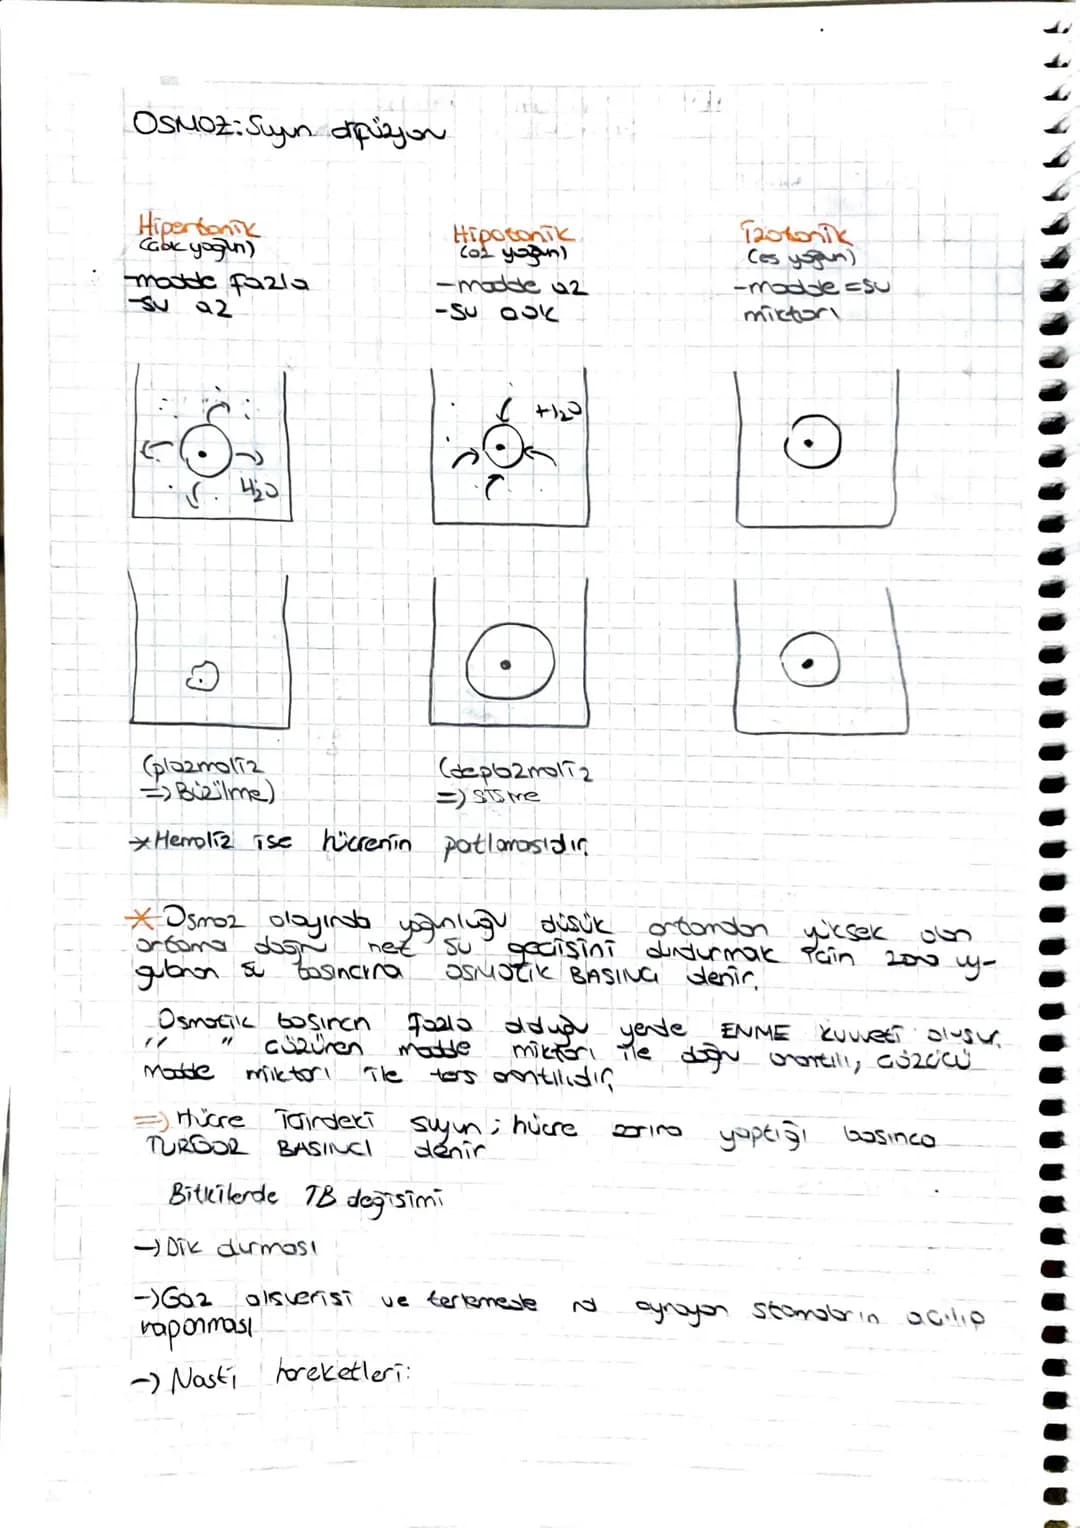 OSMOZ: Suyun difüzyon
Hipertonik
(çok yoğun)
-madde fazla
-su az
Hipotonik
(az yoğun)
-madde az
-su çok
İzotonik
(eş yoğun)
-madde = su
miktarı
H₂O
H₂O
(plazmoliz
=> Büzülme)
(deplazmoliz
=> Şişme
* Hemoliz ise hücrenin patlamasıdır.
* Osmoz olayında yoğunluğu düşük ortamdan yüksek olan
ortama doğru net su geçişini durdurmak için zara uy-
gulanan su basıncına OSMOTİK BASINÇ denir.
Osmotik basıncın fazla olduğu yerde EMME kuvveti oluşur.
" " Çözünen madde miktarı ile doğru orantılı, Çözücü
madde miktarı ile ters orantılıdır.
=> Hücre içindeki suyun; hücre zarına yaptığı basınca
TURGOR BASINCI denir
Bitkilerde TB değişimi
-> Dik durması
-> Gaz alışverişi ve terlemede rol oynayan stomaların açılıp
kapanması
-> Nasti hareketleri: